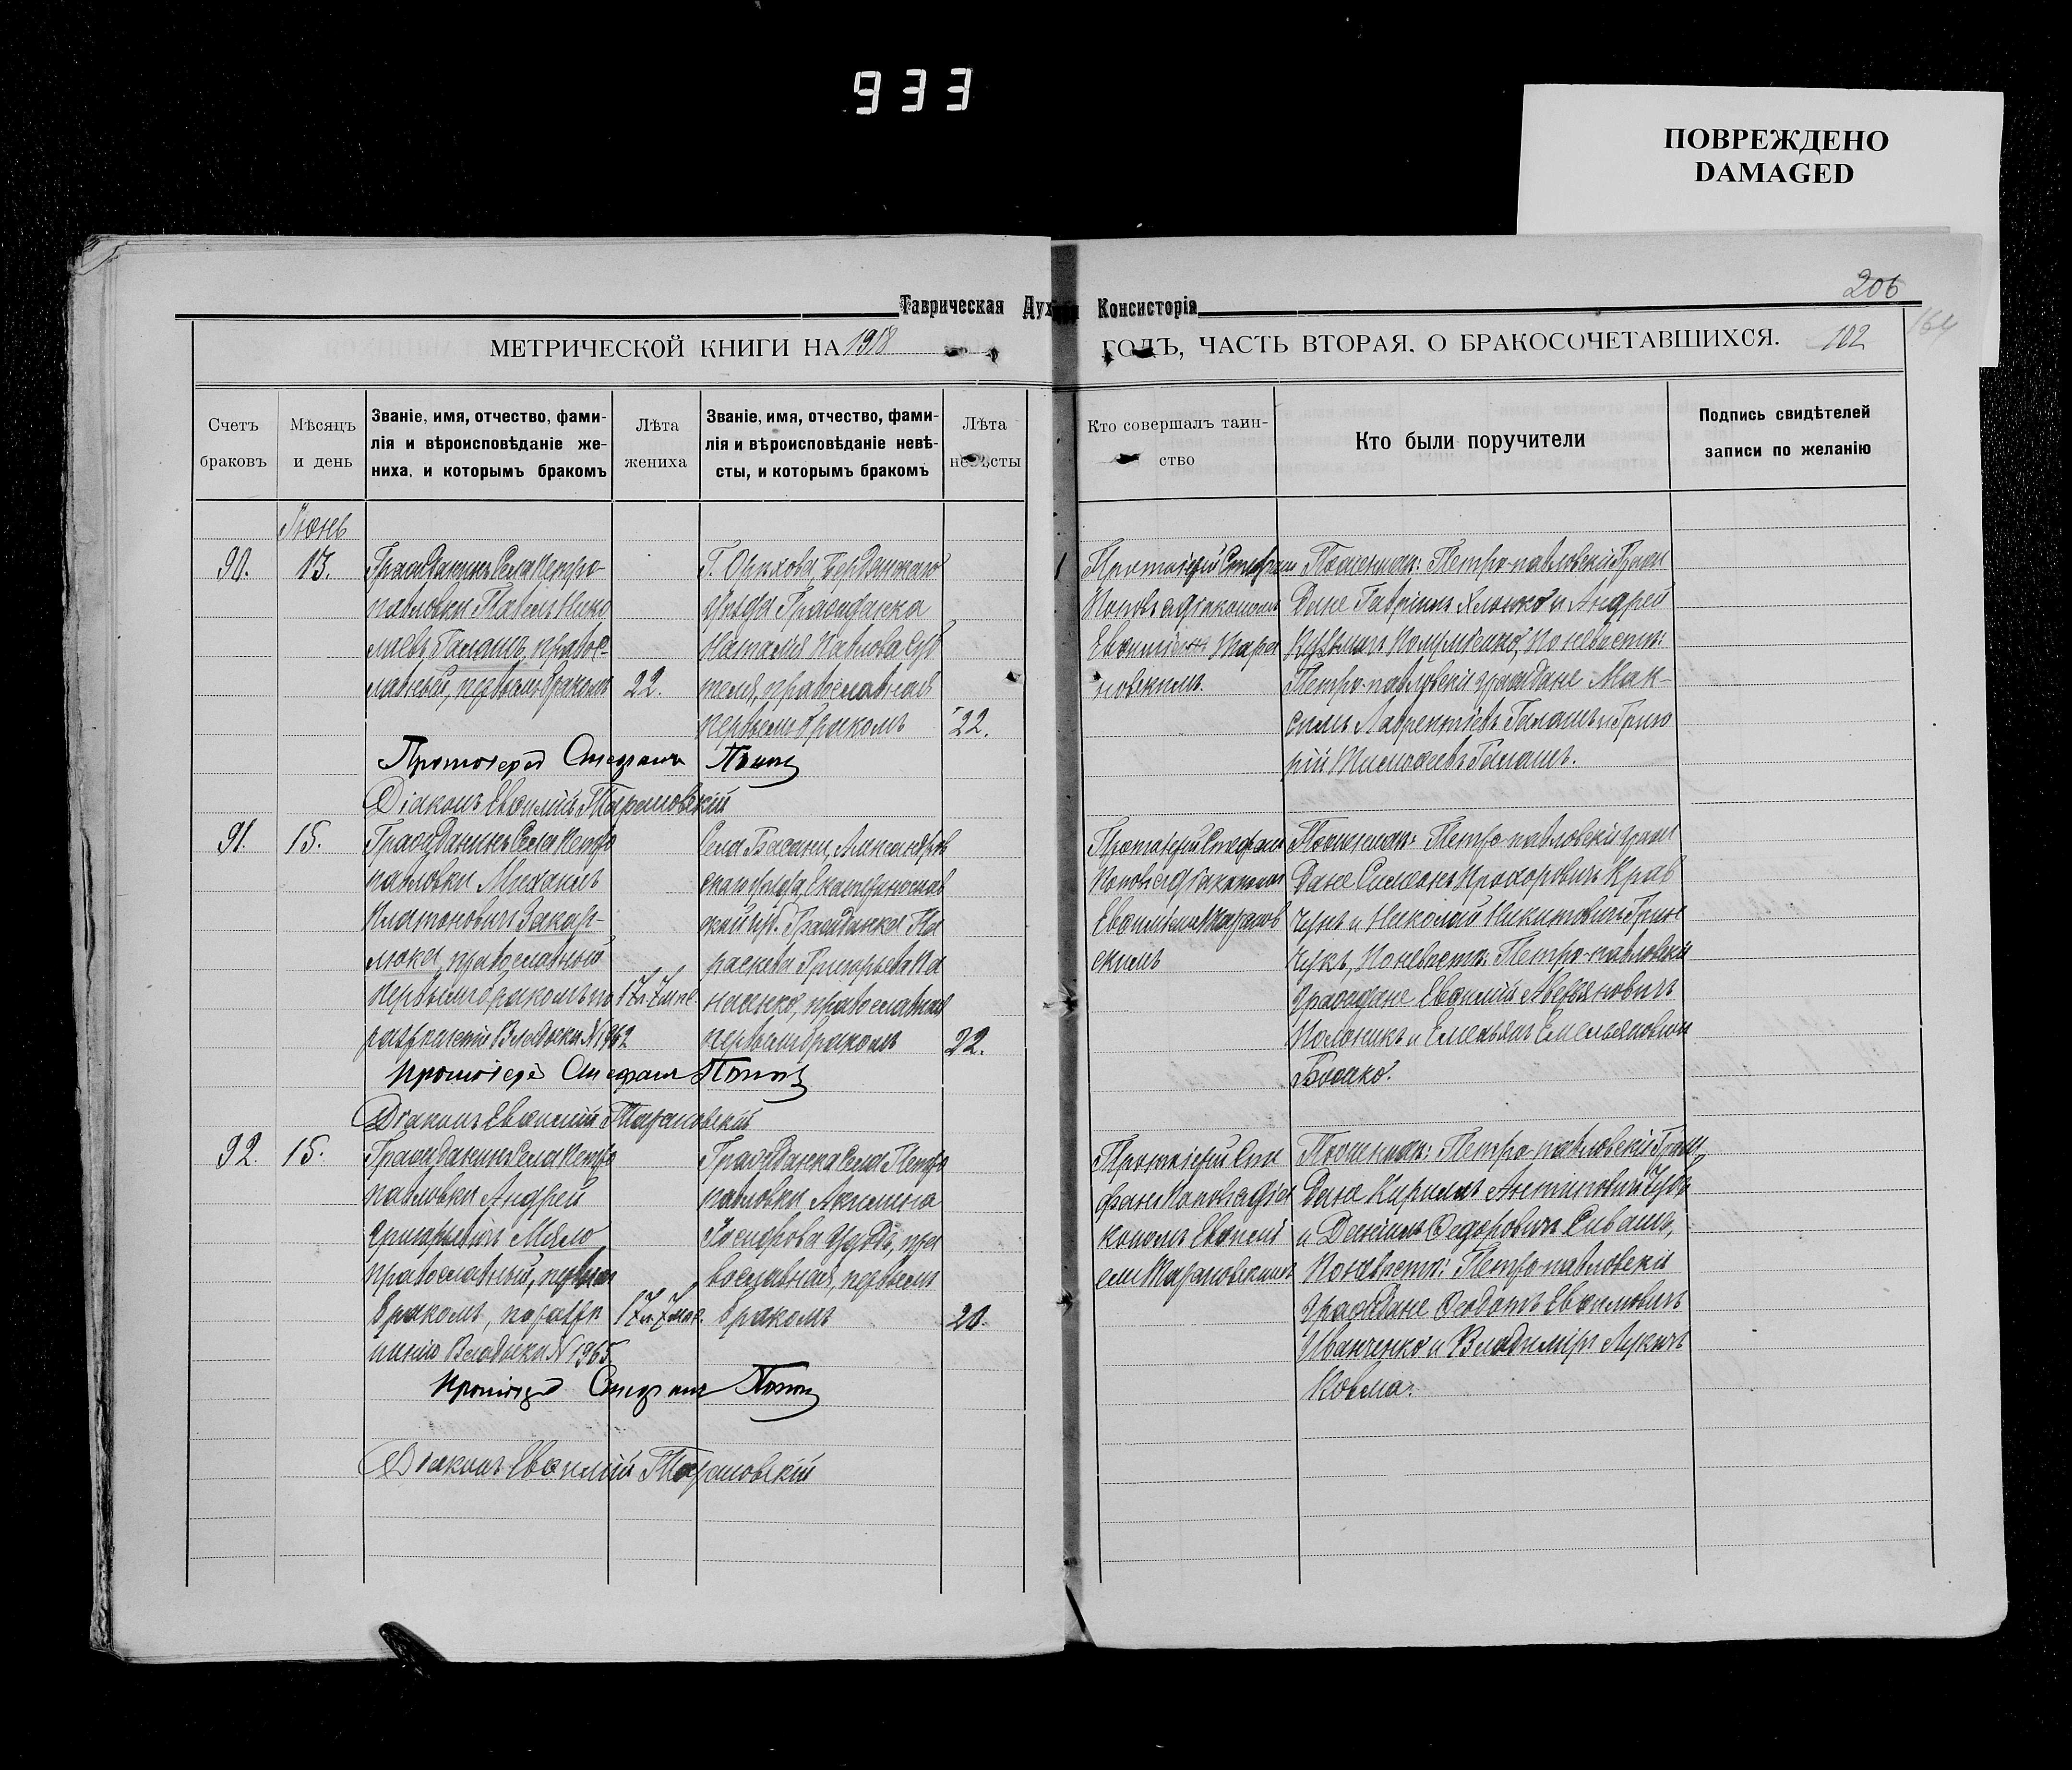 933
ПОВРЕЖДЕНО
DAMAGED
206
Таврическая Дух Консисторія
164
МЕТРИЧЕСКОЙ КНИГИ НА 1918 ГОДЪ, ЧАСТЬ ВТОРАЯ, О БРАКОСОЧЕТАВШИХСЯ. 102
Счетъ
браковъ
Мѣсяцъ
и день
Званіе, имя, отчество, фами-
лія и вѣроисповѣданіе же-
ниха, и которымъ бракомъ
Лѣта
жениха
Званіе, имя, отчество, фами-
лія и вѣроисповѣданіе невѣ-
сты, и которымъ бракомъ
Лѣта
невѣсты
Кто совершалъ таин-
ство
Кто были поручители
Подпись свидѣтелей
записи по желанію
Іюнь
90.
13.
Гражданинъ Села Петро
павловки Павелъ Нико
лаевъ Галашъ, правос-
лавный, первымъ бракомъ
22.
Г. Орѣхова, Бердянскаго
уѣзда Гражданка
Наталія Павлова
православная
первымъ бракомъ
22.
Протоіерей Стефанъ
Поповъ съ діакономъ
Евфиміемъ Тара
новскимъ.
По женихѣ: Петро-павловскіе Граж
дане Гавріилъ и Андрей
По невѣстѣ:
Петро-павловскіе граждане Мак-
симъ Лаврентіевъ Галашъ и Григо
рій Тимофеевъ Галашъ.
Протоіерей Стефанъ Поповъ
Діаконъ Евфимій Тарановскій
91.
15.
Гражданинъ Села Петро
павловки Михаилъ
Платоновичъ Закар-
люка, православный
первымъ бракомъ по
разрѣшенію Владыки № 1962
17 л. 7 мѣс.
Села Басани, Александров
скаго уѣзда, Екатеринослав
ской губ. Гражданка Па
раскева Григорьева Па
насенко, православная
первымъ бракомъ
22.
Протоіерей Стефанъ
Поповъ съ діакономъ
Евфиміемъ Таранов
скимъ
По женихѣ: Петро-павловскіе граж
дане Симеонъ Прохоровичъ Крав
чукъ и Николай Никитовичъ Грин
чукъ, По невѣстѣ: Петро-павловскіе
Граждане Евфимій Аверьяновичъ
Полоникъ и Емельянъ Емельяновичъ
Протоіерей Стефанъ Поповъ
Діаконъ Евфимій Тарановскій
92.
15.
Гражданинъ Села Петро
павловки Андрей
Григорьевичъ Мяло
православный, первымъ
бракомъ, по разрѣ
шенію Владыки № 1965
17 л. 7 мѣс.
Гражданка Села Петро
павловки Акилина
Іосифова пра
вославная, первымъ
бракомъ
20.
Протоіерей Сте
фанъ Поповъ съ діа
кономъ Евфимі
емъ Тарановскимъ
По женихѣ: Петро-павловскіе Граж
дане Кириллъ Антиповичъ Чубъ
и Даніилъ Федоровичъ Сивашъ,
По невѣстѣ: Петро-павловскіе
Граждане Федотъ Евфимовичъ
Иванченко и Владиміръ Лукичъ
Протоіерей Стефанъ Поповъ
Діаконъ Евфимій Тарановскій